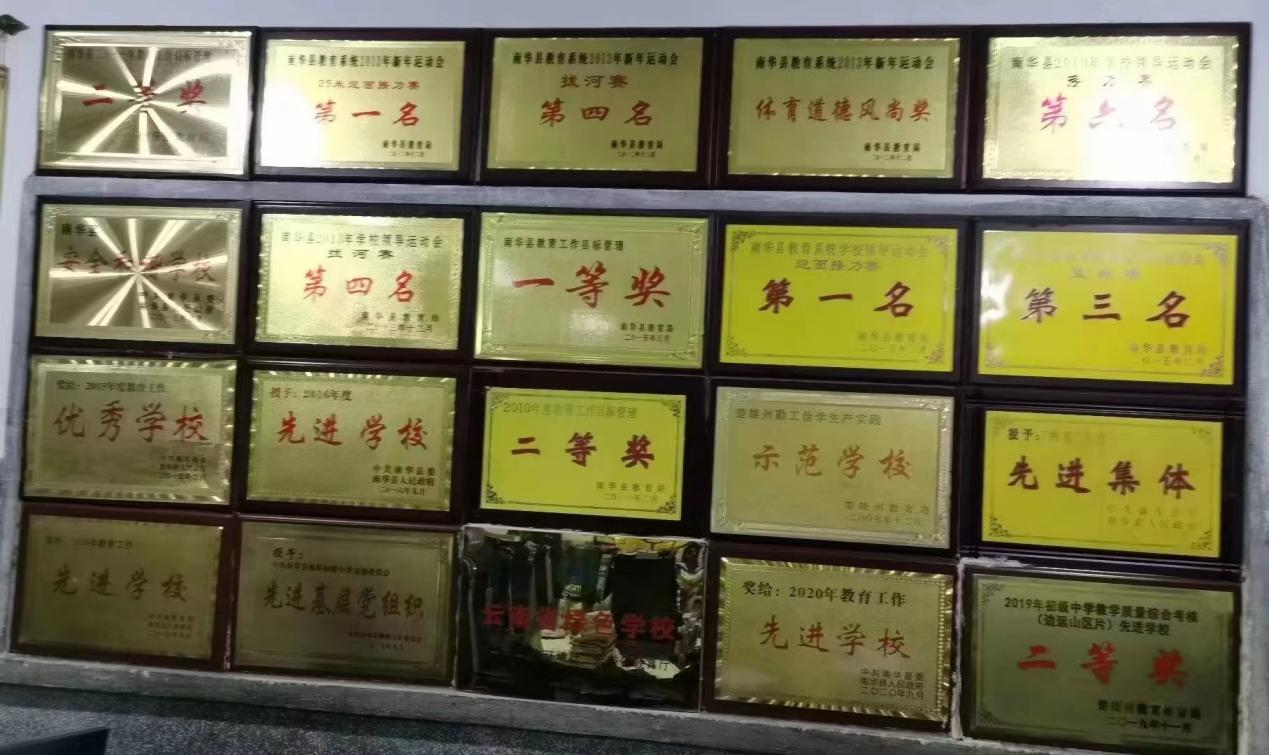 二等奖
南华县教育系统2013年新年运动会
25米迎面接力赛
第一名
南华县教育局
二〇一二年十二月
南华县教育系统2013年新年运动会
拔河赛
第四名
南华县教育局
二〇一二年十二月
南华县教育系统2013年新年运动会
体育道德风尚奖
南华县教育局
二〇一二年十二月
南华县2013年学校领导运动会
接力赛
第六名
南华县
学校
南华县2013年学校领导运动会
拔河赛
第四名
南华县教育局
二〇一三年十二月
南华县教育工作目标管理
一等奖
南华县教育局
二〇一五年三月
南华县教育系统学校领导运动会
迎面接力赛
第一名
南华县教育局
第三名
南华县教育局
奖给：2015年度教育工作
优秀学校
授予：2016年度
先进学校
中共南华县委
南华县人民政府
二〇一六年九月
2010年度教育工作目标管理
二等奖
南华县教育局
二〇一一年二月
楚雄州勤工俭学生产实践
示范学校
楚雄州教育局
二〇〇七年十二月
授予：
先进集体
南华县人民政府
先进学校
授予：
先进基层党组织
云南省绿色学校
奖给：2020年教育工作
先进学校
中共南华县委
南华县人民政府
二〇二〇年九月
2019年初级中学教学质量综合考核
（边远山区片）先进学校
二等奖
楚雄州教育体育局
二〇一九年十一月